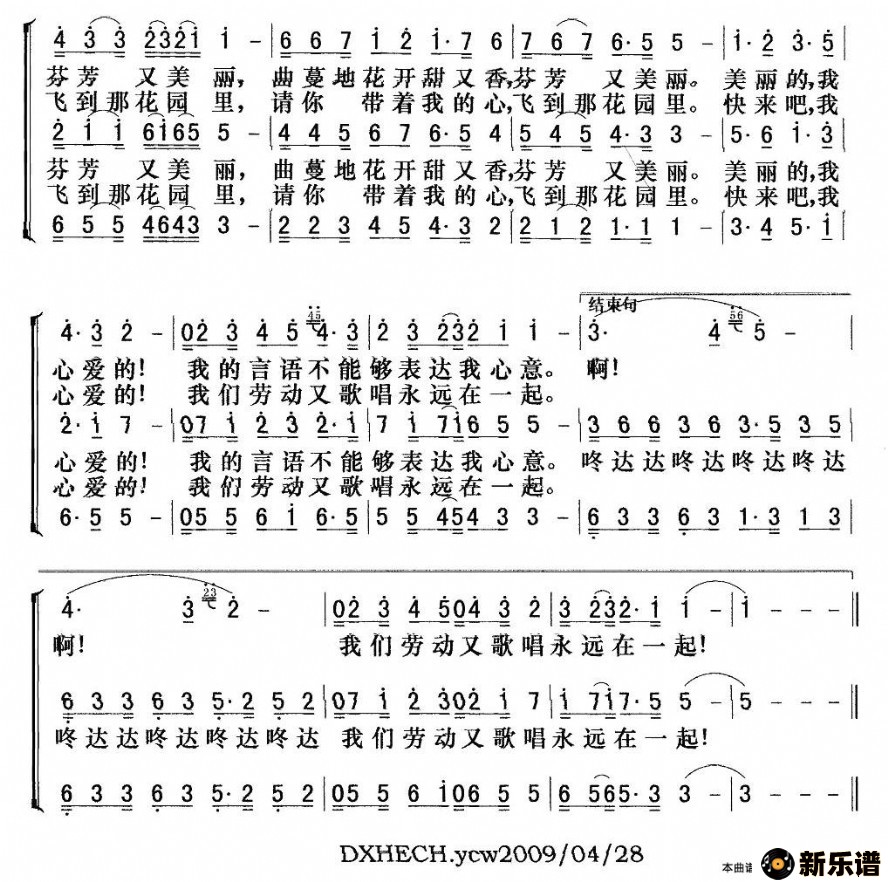 4 3 3 2321 1 - | 6 6 7 1 2 1·7 6 | 7 6 7 6·5 5 - | 1·2 3·5
芬芳 又美丽,曲蔓地花开甜又香,芬芳 又美丽。美丽的,我
飞到那花园里,请你 带着我的心,飞到那花园里。快来吧,我
2 1 1 6165 5 - | 4 4 5 6 7 6·5 4 | 5 4 5 4·3 3 - | 5·6 1·3
芬芳 又美丽,曲蔓地花开甜又香,芬芳 又美丽。美丽的,我
飞到那花园里,请你 带着我的心,飞到那花园里。快来吧,我
6 5 5 4643 3 - | 2 2 3 4 5 4·3 2 | 2 1 2 1·1 1 - | 3·4 5·1
结束句
4·3 2 - | 02 3 4 5 45 4·3 | 2 3 232 1 1 - | 3· 4 56 5 -
心爱的!我的言语不能够表达我心意。啊!
心爱的!我们劳动又歌唱永远在一起。
2·1 7 - | 07 1 2 3 2·1 | 7 1 716 5 5 - | 3 6 6 3 6 3·5 3 5
心爱的!我的言语不能够表达我心意。咚达达咚达咚达咚达
心爱的!我们劳动又歌唱永远在一起。
6·5 5 - | 05 5 6 1 6·5 | 5 5 454 3 3 - | 6 3 3 6 3 1·3 1 3
4· 3 23 2 - | 02 3 4 504 3 2 | 3 232·1 1 - | 1 - ||
啊!我们劳动又歌唱永远在一起!
6 3 3 6 3 5·2 5 2 | 07 1 2 302 1 7 | 1 717·5 5 - | 5 - ||
咚达达咚达咚达咚达 我们劳动又歌唱永远在一起!
6 3 3 6 3 5·2 5 2 | 05 5 6 106 5 5 | 6 565·5 3 - | 3 - ||
DXHECH.ycw2009/04/28
本曲谱
新乐谱